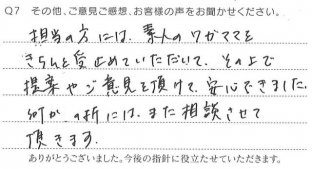 Q7 その他、ご意見ご感想、お客様の声をお聞かせください。
担当の方には、素人のワガママを
きちんと受止めていただいて、その上で
提案やご意見を頂けて、安心できました。
何かの折には、また相談させて
頂きます。
ありがとうございました。今後の指針に役立たせていただきます。